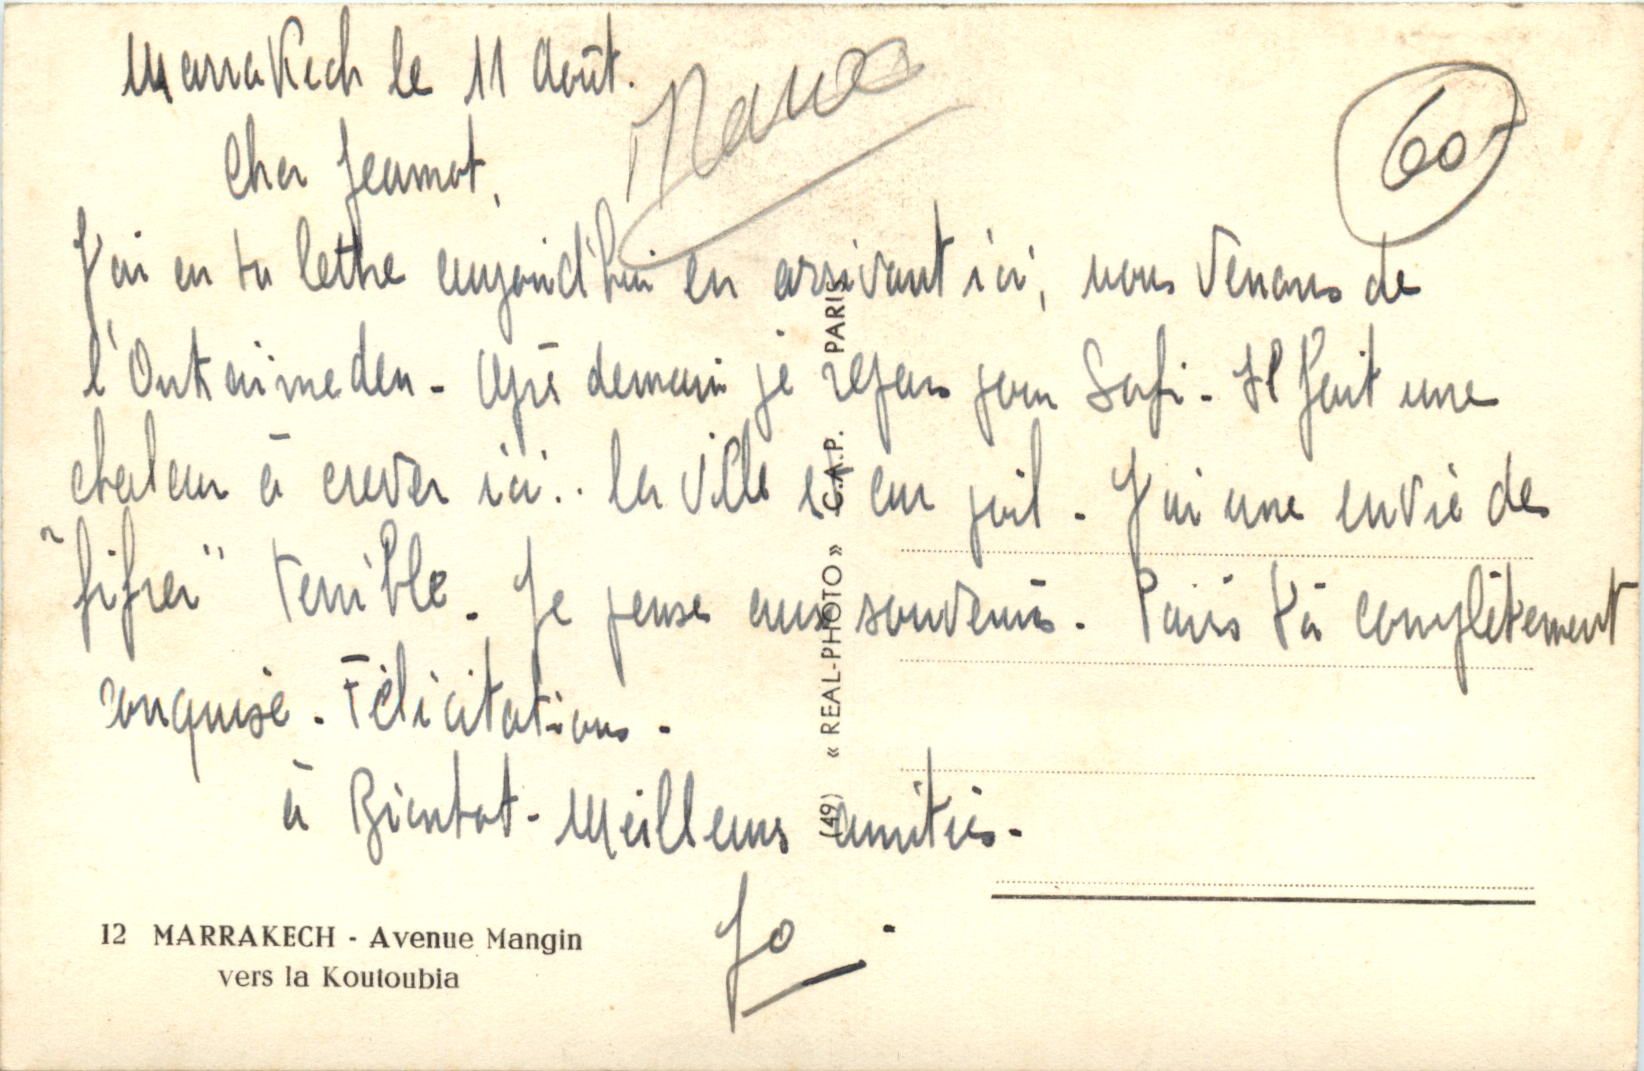 Marrakech le 11 Août.
Maroc
60F
Cher Jeannot,
J'ai eu ta lettre aujourd'hui en arrivant ici, nous venons de
l'Oukaimeden - après demain je repars pour Safi - Il fait une
chaleur à crever ici.. la ville est au poil - J'ai une envie de
"fifrer" terrible. Je pense aux souvenirs. Paris t'a complètement
conquise - Félicitations -
à Bientot - Meilleurs amitiés -
Jo -
(49) « REAL-PHOTO » C.A.P. PARIS
12 MARRAKECH - Avenue Mangin
vers la Koutoubia